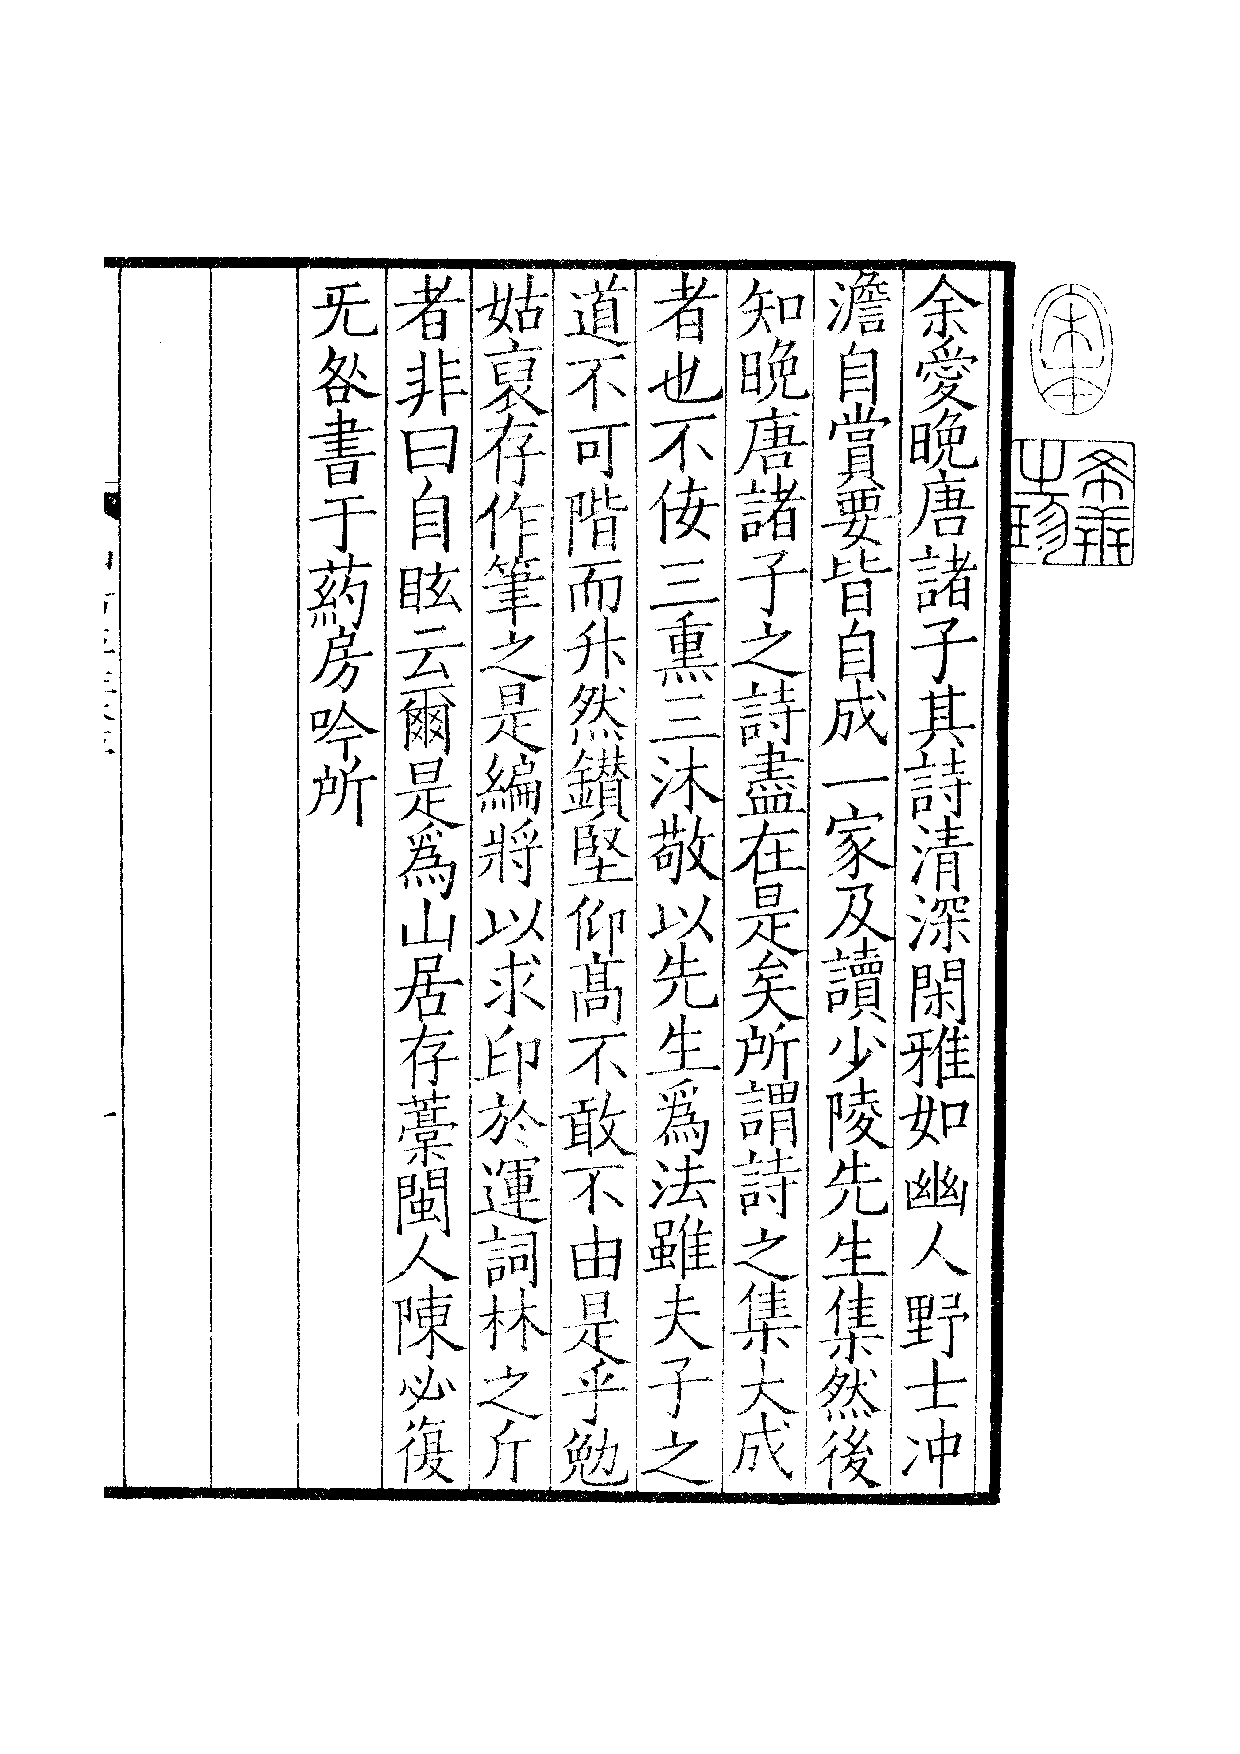 余愛晚唐諸子其詩清深閑雅如幽人野士冲
澹自賞要皆自成一家及讀少陵先生集然後
知晚唐諸子之詩盡在是矣所謂詩之集大成
者也不佞三熏三沐敬以先生爲法雖夫子之
道不可階而升然鑚堅仰髙不敢不由是乎勉
姑裒存作筆之是編將以求印於運詞林之斤
者非曰自眩云爾是爲山居存藁閩人陳必復
旡咎書于葯房吟所